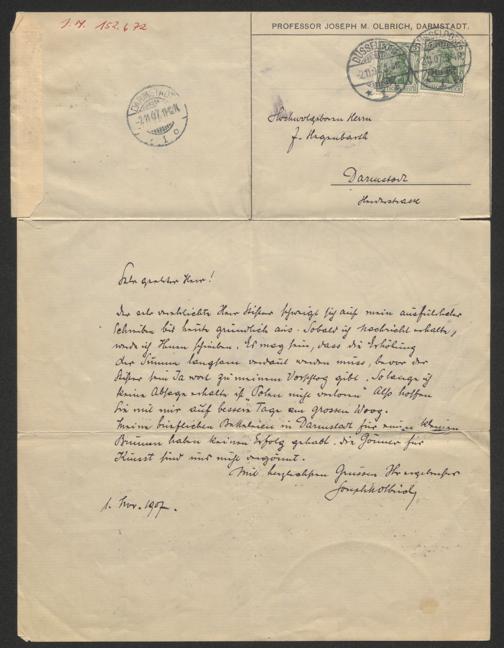 J. N. 152.672
PROFESSOR JOSEPH M. OLBRICH, DARMSTADT.
DÜSSELDORF
2.11.07
DÜSSELDORF
2.11.07
DARMSTADT
-2.11.07. 11-12.N.
1
Hochwolgeboren Herrn
J. Hegenbarth
Darmstadt
Herderstrasse
Sehr geehrter Herr!
Der sehr verehrliche Herr Stifter schweigt sich auf mein ausführliches
Schreiben bis heute gründlich aus. Sobald ich Nachricht erhalte,
werde ich Ihnen schreiben. Es mag sein, dass die Erhöhung
der Summe langsam verdaut werden muss, bevor der
Stifter sein Ja wort zu meinem Vorschlag gibt. Solange ich
keine Absage erhalte ist „Polen nicht verloren". Also hoffen
Sie mit mir auf bessere Tage am grossen Woog.
Meine brieflichen Betteleien in Darmstadt für einen kleinen
Brunnen haben keinen Erfolg gehabt. Die Gönner für
Kunst sind uns nicht
Mit herzlichsten Grüssen Ihr ergebenster
Joseph M Olbrich
1. Nov. 1907.